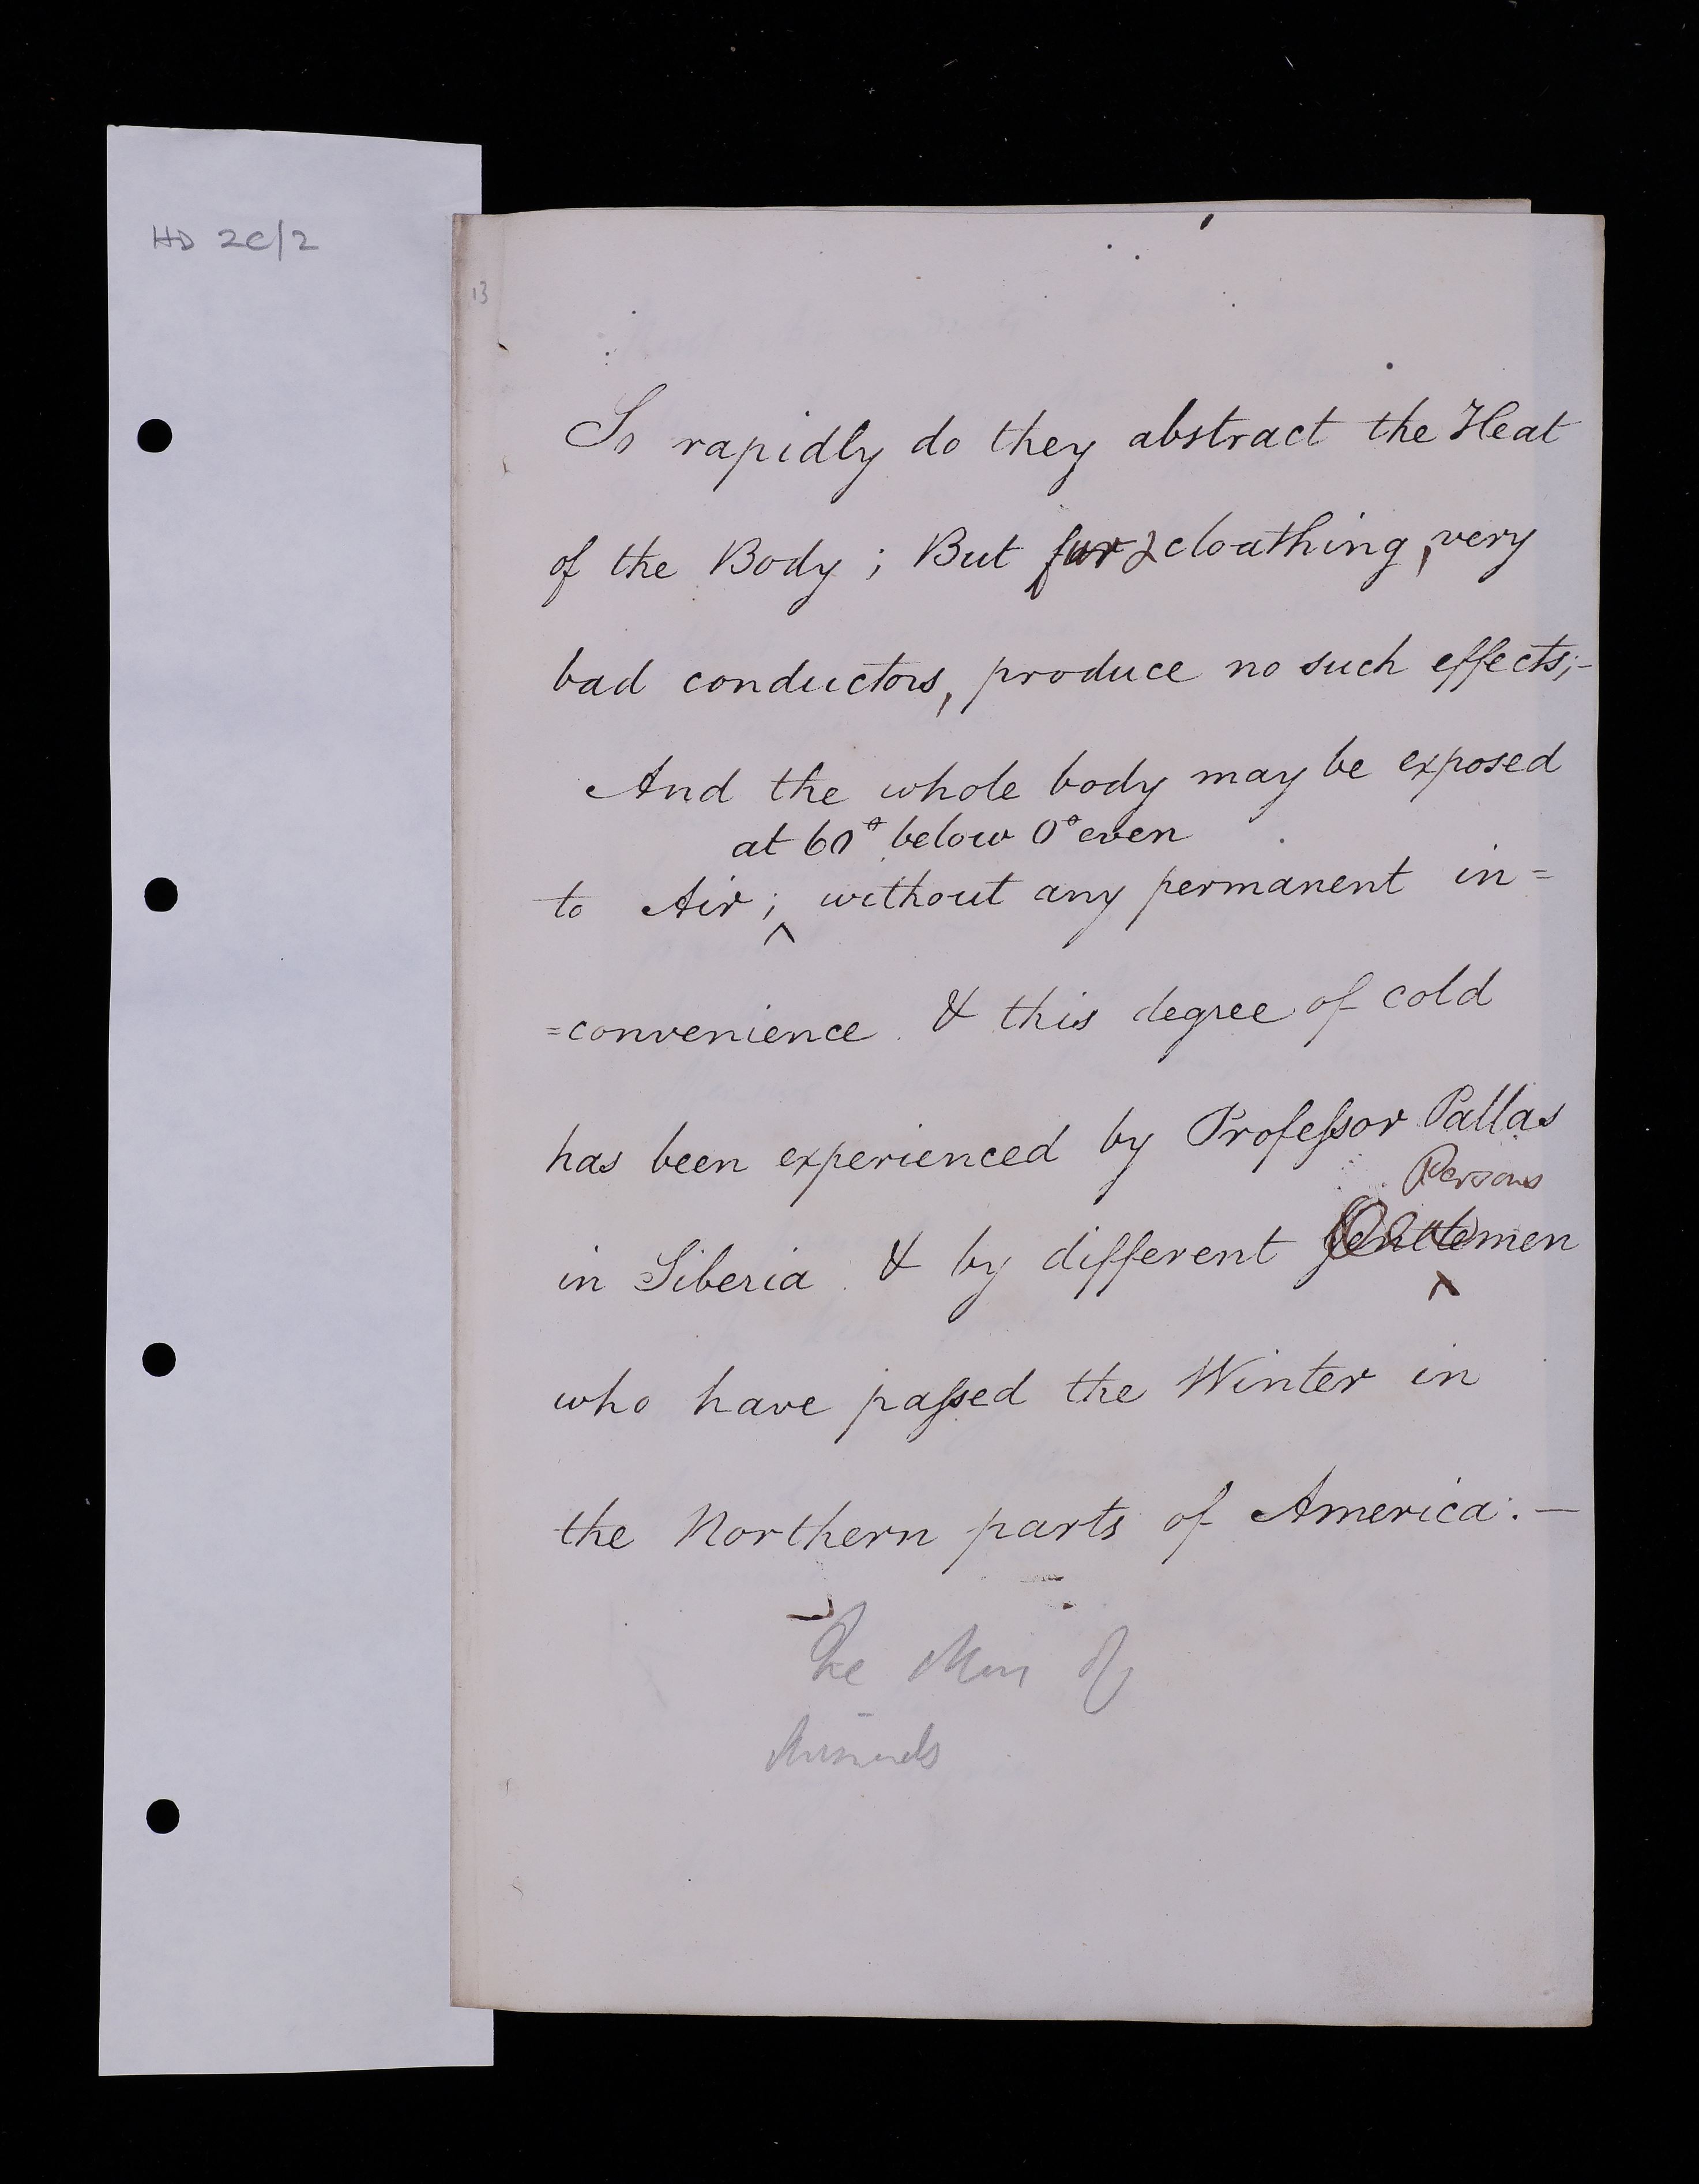 HD 2C/2
13
So rapidly do they abstract the Heat
of the Body; But fur & cloathing, very
bad conductors, produce no such effects;-
And the whole body may be exposed
at 60° below 0° even
to Air; ^ without any permanent in=
=convenience. & this degree of cold
has been experienced by Professor Pallas
Persons
in Siberia. & by different Gentlemen
^
who have passed the Winter in
the Northern parts of America:.—
The